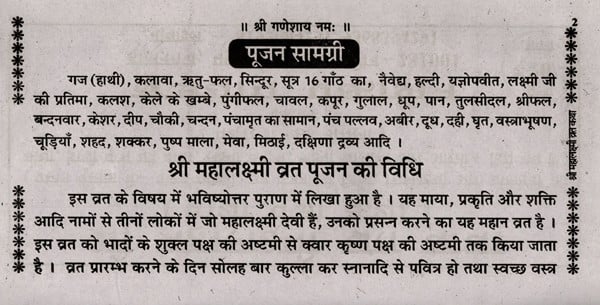 ॥ श्री गणेशाय नमः ॥
2
पूजन सामग्री
गज (हाथी), कलावा, ऋतु-फल, सिन्दूर, सूत्र 16 गाँठ का, नैवेद्य, हल्दी, यज्ञोपवीत, लक्ष्मी जी
की प्रतिमा, कलश, केले के खम्बे, पुंगीफल, चावल, कपूर, गुलाल, धूप, पान, तुलसीदल, श्रीफल,
बन्दनवार, केशर, दीप, चौकी, चन्दन, पंचामृत का सामान, पंच पल्लव, अबीर, दूध, दही, घृत, वस्त्राभूषण,
चूड़ियाँ, शहद, शक्कर, पुष्प माला, मेवा, मिठाई, दक्षिणा द्रव्य आदि ।
श्री महालक्ष्मी व्रत पूजन की विधि
इस व्रत के विषय में भविष्योत्तर पुराण में लिखा हुआ है । यह माया, प्रकृति और शक्ति
आदि नामों से तीनों लोकों में जो महालक्ष्मी देवी हैं, उनको प्रसन्न करने का यह महान व्रत है ।
इस व्रत को भादों के शुक्ल पक्ष की अष्टमी से क्वार कृष्ण पक्ष की अष्टमी तक किया जाता
है । व्रत प्रारम्भ करने के दिन सोलह बार कुल्ला कर स्नानादि से पवित्र हो तथा स्वच्छ वस्त्र
श्री महालक्ष्मी व्रत कथा